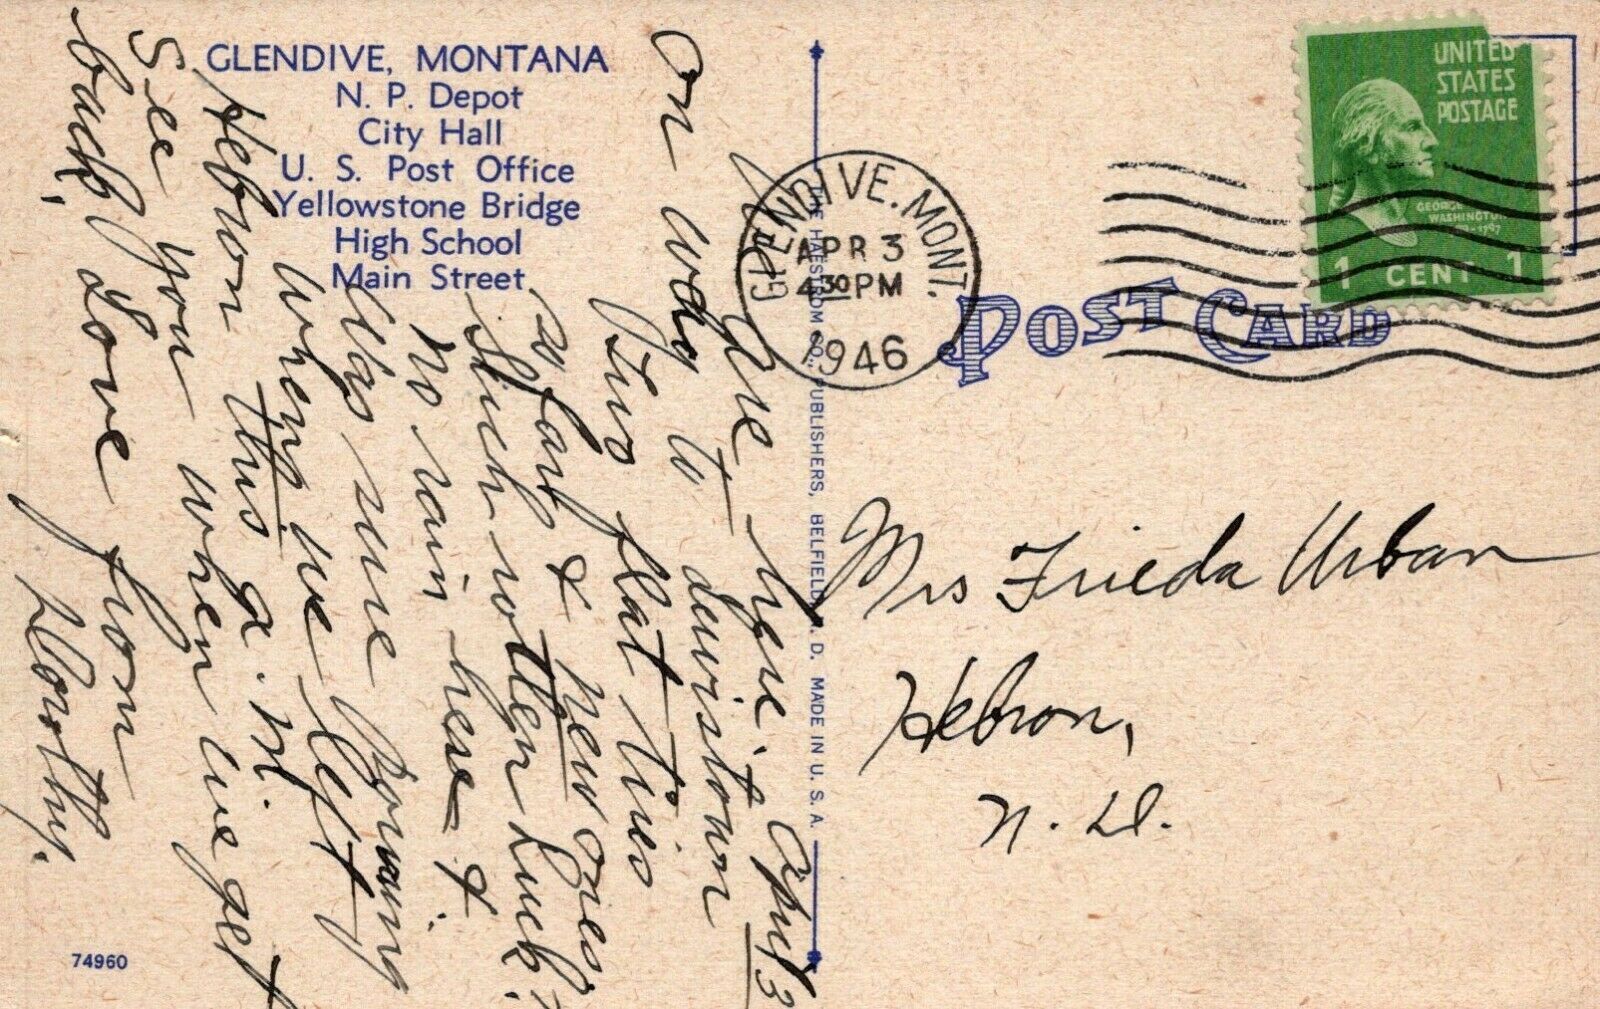 GLENDIVE, MONTANA
N. P. Depot
City Hall
U. S. Post Office
Yellowstone Bridge
High School
Main Street
April 3
We are here
on way to
dewistown
Two flat tires
so far & new ones
Such rotten luck!
No rain here &
Was sure pouring
when we left
Hebron this a.m.
See you when we get
back, Love from
Dorothy.
74960
THE HAESTROM CO., PUBLISHERS, BELFIELD, N. D. MADE IN U. S. A.
GLENDIVE. MONT.
APR 3
4 30 PM
1946
POST CARD
UNITED
STATES
POSTAGE
GEORGE
WASHINGTON
1 CENT 1
Mrs Frieda Urban
Hebron,
N. D.